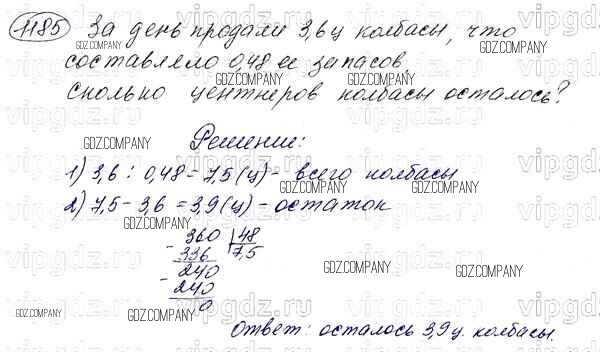 1185) За день продали 3,6 ц колбасы, что
составляло 0,48 ее запасов.
Сколько центнеров колбасы осталось?
Решение:
1) 3,6 : 0,48 = 7,5 (ц) - всего колбасы
2) 7,5 - 3,6 = 3,9 (ц) - остаток
360 | 48
- 336 7,5
240
- 240
0
Ответ: осталось 3,9 ц. колбасы.
GDZ.COMPANY
vipgdz.ru